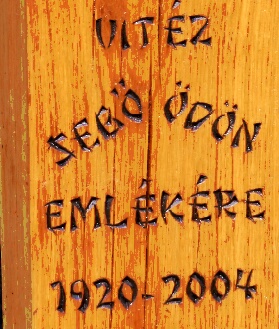 VITÉZ
SEBŐ ÖDÖN
EMLÉKÉRE
1920-2004